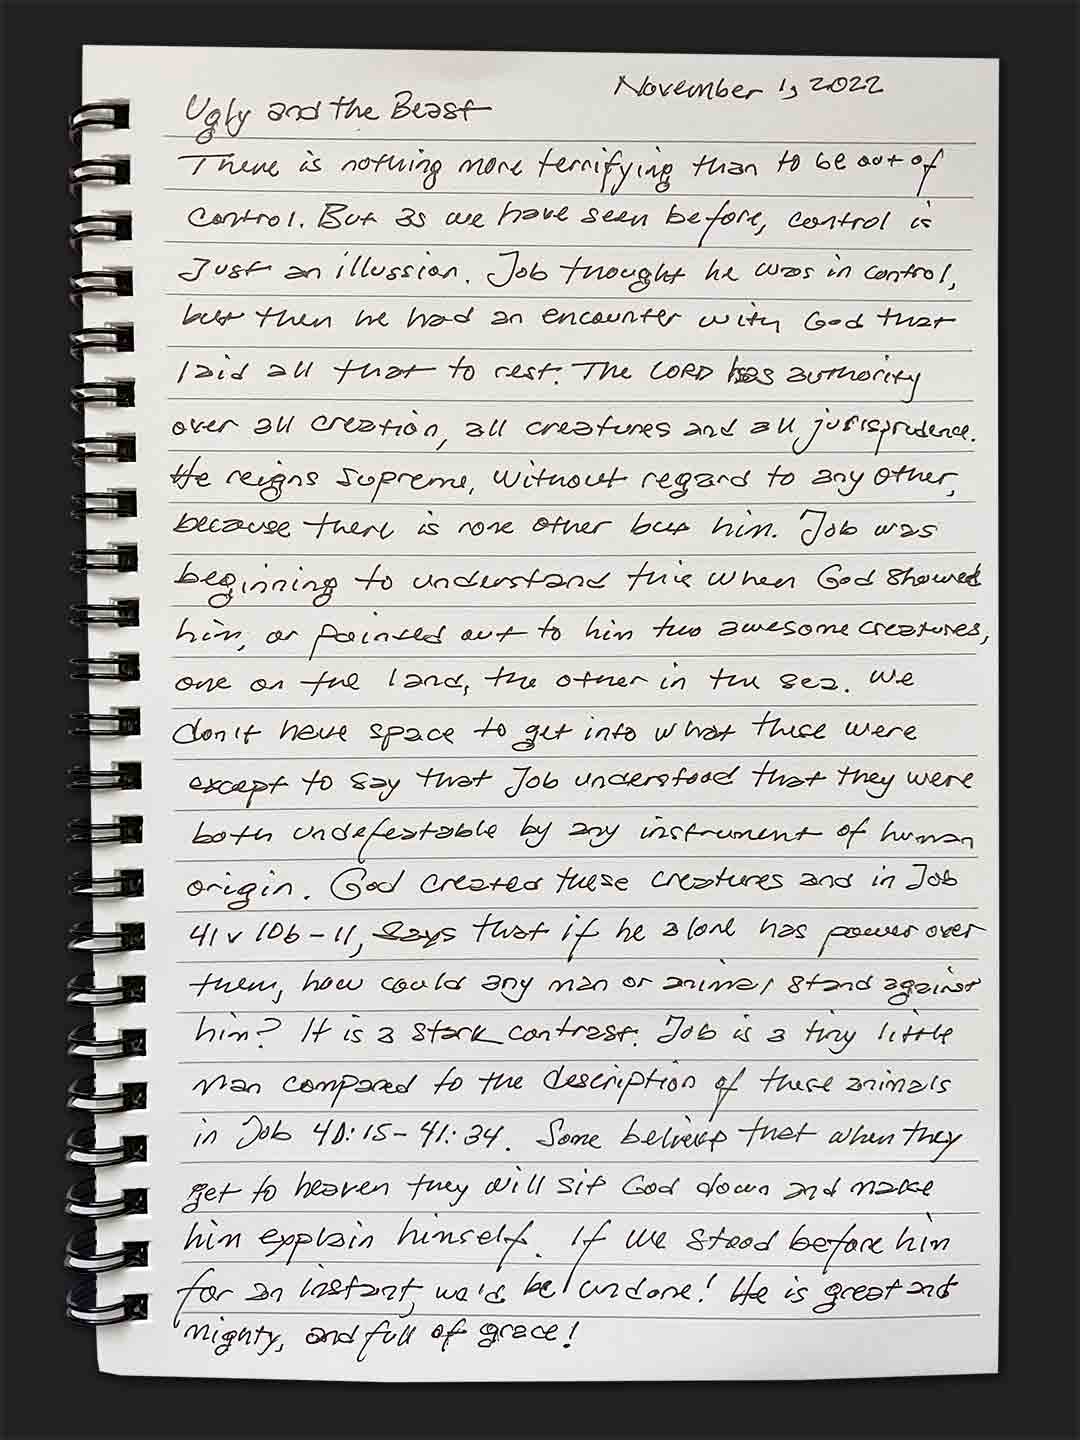 November 1, 2022
Ugly and the Beast
There is nothing more terrifying than to be out of
control. But as we have seen before, control is
Just an illussion. Job thought he was in control,
but then he had an encounter with God that
laid all that to rest. The LORD has authority
over all creation, all creatures and all jurisprudence.
He reigns supreme, without regard to any other,
because there is none other but him. Job was
beginning to understand this when God showed
him, or pointed out to him two awesome creatures,
one on the land, the other in the sea. We
don't have space to get into what these were
except to say that Job understood that they were
both undefeatable by any instrument of human
origin. God created these creatures and in Job
41 v 10b-11, says that if he alone has power over
them, how could any man or animal stand against
him? It is a stark contrast. Job is a tiny little
man compared to the description of these animals
in Job 40:15-41:34. Some believe that when they
get to heaven they will sit God down and make
him explain himself. If we stood before him
for an instant, we'd be undone! He is great and
mighty, and full of grace!